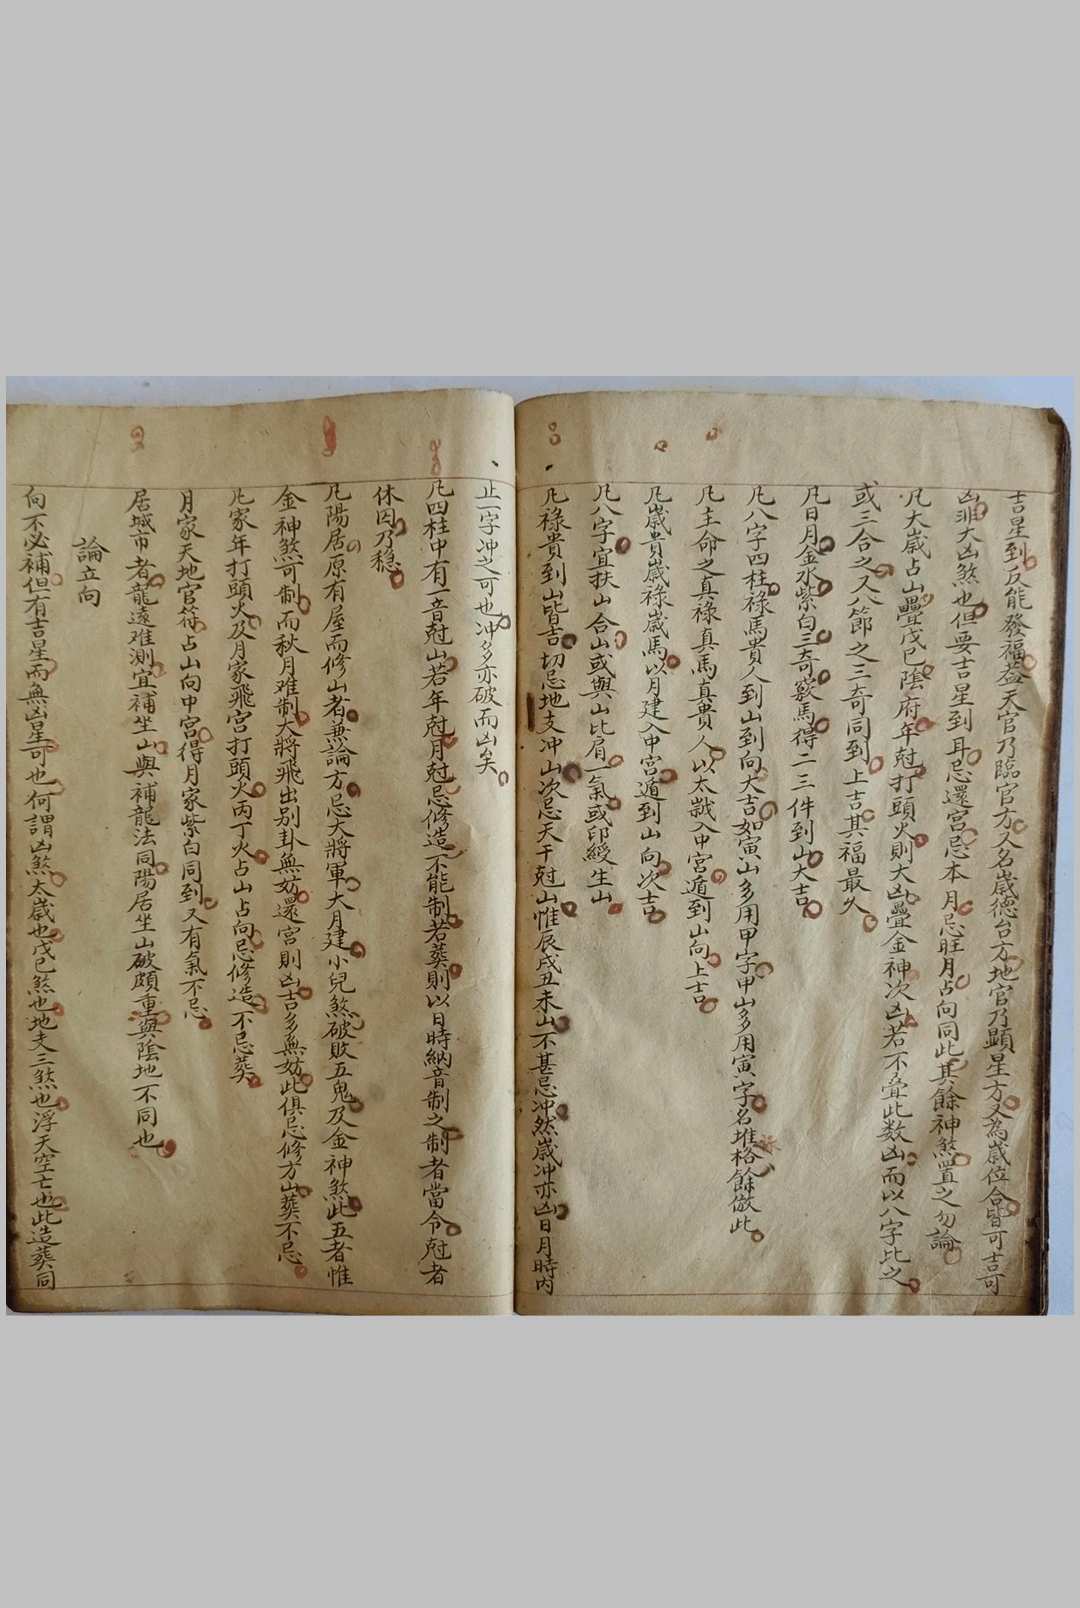 吉星到反能發福葢天官乃臨官方又名歲德合方地官乃顯星方又為歲位合皆可吉可
凶非大凶煞也但要吉星到耳忌還宮忌本月忌旺月占向同此其餘神煞置之勿論
凡大歲占山疊戊巳陰府年尅打頭火則大凶疊金神次凶若不叠此数凶而以八字比之
或三合之又八節之三奇同到上吉其福最久
凡日月金水紫白三奇竅馬得二三件到山大吉
凡八字四柱祿馬貴人到山到向大吉如寅山多用甲字甲山多用寅字名堆格餘倣此
凡主命之真祿真馬真貴人以太歲入中宮遁到山向上吉
凡歲貴歲祿歲馬以月建入中宮遁到山向次吉
凡八字宜扶山合山或與山比肩一氣或印綬生山
凡祿貴到山皆吉切忌地支冲山次忌天干尅山惟辰戌丑未山不甚忌冲然歲冲亦凶日月時内
止一字冲之可也冲多亦破而凶矣
凡四柱中有一音尅山若年尅月尅忌修造不能制若葬則以日時納音制之制者當令尅者
休囚乃穏
凡陽居原有屋而修山者兼論方忌大將軍大月建小兒煞破敗五鬼及金神煞此五者惟
金神煞可制而秋月难制大將飛出别卦無妨還宮則凶吉多無妨此俱忌修方山葬不忌
凡家年打頭火及月家飛宮打頭火丙丁火占山占向忌修造不忌葬
月家天地官符占山向中宮得月家紫白同到又有氣不忌
居城市者龍遠难測宜補坐山與補龍法同陽居坐山破頗重與陰地不同也
論立向
向不必補但有吉星而無凶星可也何謂凶煞太歲也戊巳煞也地支三煞也浮天空亡也此造葬同